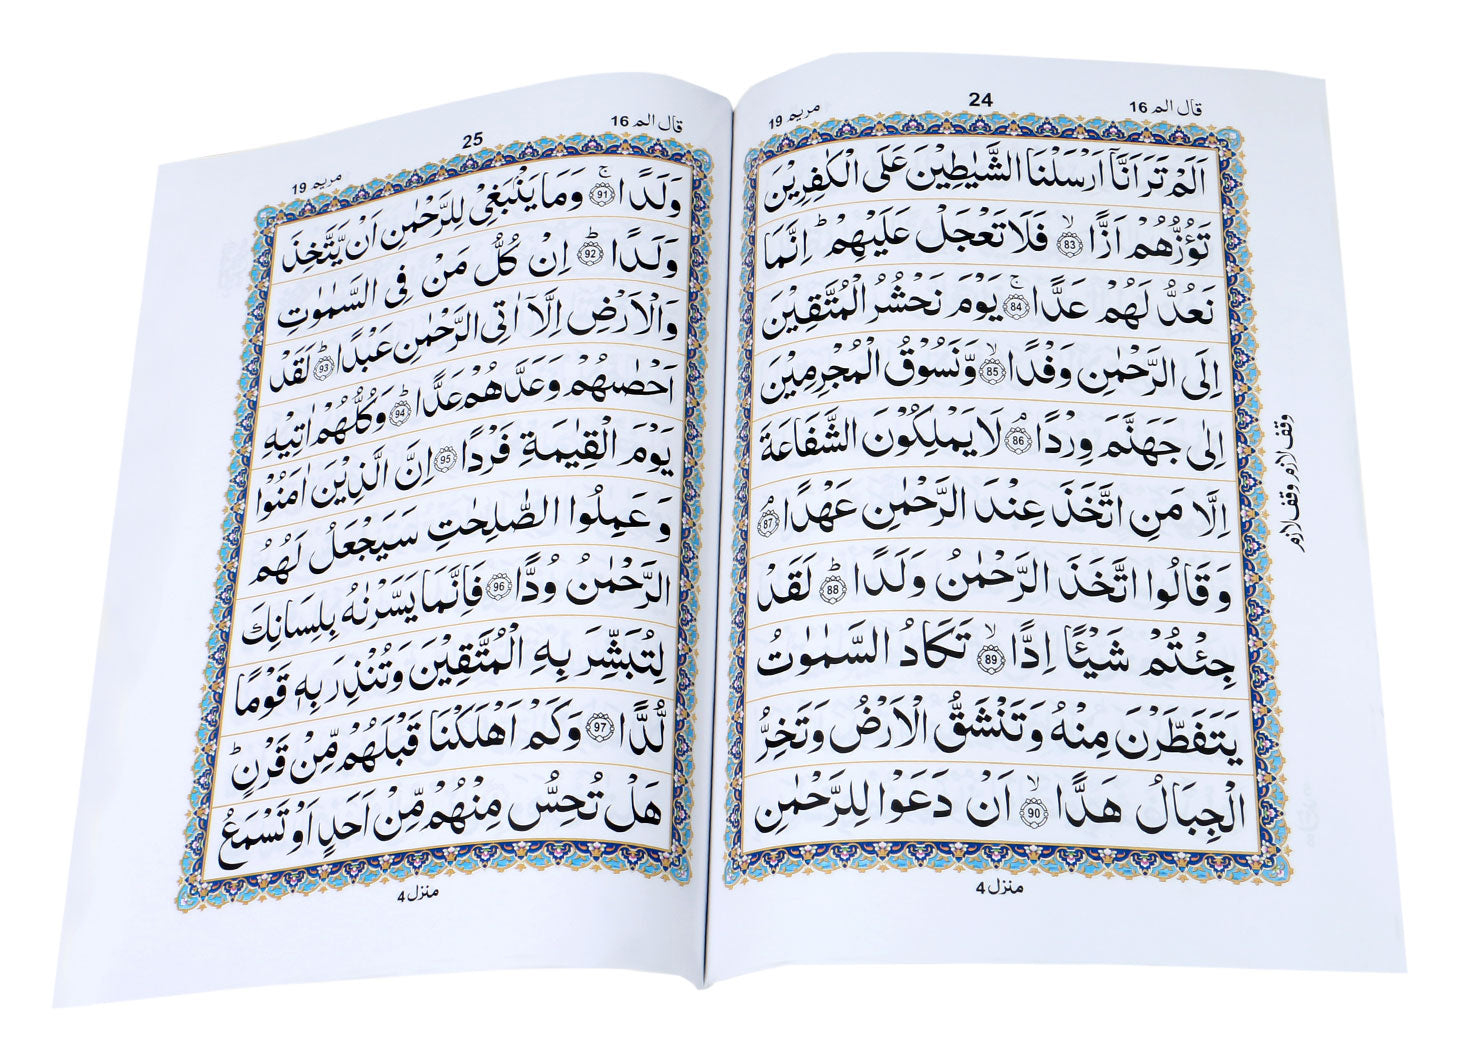 مريم 19
24
قال الم 16
اَلَمْ تَرَ اَنَّاۤ اَرْسَلْنَا الشَّيٰطِيْنَ عَلَى الْكٰفِرِيْنَ
تَؤُزُّهُمْ اَزًّا ۙ83 فَلَا تَعْجَلْ عَلَيْهِمْ ؕ اِنَّمَا
نَعُدُّ لَهُمْ عَدًّا ۚ84 يَوْمَ نَحْشُرُ الْمُتَّقِيْنَ
اِلَى الرَّحْمٰنِ وَفْدًا ۙ85 وَّنَسُوْقُ الْمُجْرِمِيْنَ
اِلٰى جَهَنَّمَ وِرْدًا ۘ86 لَا يَمْلِكُوْنَ الشَّفَاعَةَ
اِلَّا مَنِ اتَّخَذَ عِنْدَ الرَّحْمٰنِ عَهْدًا ۘ87
وَقَالُوا اتَّخَذَ الرَّحْمٰنُ وَلَدًا ؕ88 لَقَدْ
جِئْتُمْ شَيْـًٔا اِدًّا ۙ89 تَكَادُ السَّمٰوٰتُ
يَتَفَطَّرْنَ مِنْهُ وَتَنْشَقُّ الْاَرْضُ وَتَخِرُّ
الْجِبَالُ هَدًّا ۙ90 اَنْ دَعَوْا لِلرَّحْمٰنِ
وقف لازم وقف لازم
منزل 4
مريم 19
25
قال الم 16
وَلَدًا ۚ91 وَمَا يَنْۢبَغِيْ لِلرَّحْمٰنِ اَنْ يَّتَّخِذَ
وَلَدًا ؕ92 اِنْ كُلُّ مَنْ فِي السَّمٰوٰتِ
وَالْاَرْضِ اِلَّاۤ اٰتِى الرَّحْمٰنِ عَبْدًا ؕ93 لَقَدْ
اَحْصٰىهُمْ وَعَدَّهُمْ عَدًّا ؕ94 وَكُلُّهُمْ اٰتِيْهِ
يَوْمَ الْقِيٰمَةِ فَرْدًا 95 اِنَّ الَّذِيْنَ اٰمَنُوْا
وَعَمِلُوا الصّٰلِحٰتِ سَيَجْعَلُ لَهُمُ
الرَّحْمٰنُ وُدًّا 96 فَاِنَّمَا يَسَّرْنٰهُ بِلِسَانِكَ
لِتُبَشِّرَ بِهِ الْمُتَّقِيْنَ وَتُنْذِرَ بِهٖ قَوْمًا
لُّدًّا 97 وَكَمْ اَهْلَكْنَا قَبْلَهُمْ مِّنْ قَرْنٍ ؕ
هَلْ تُحِسُّ مِنْهُمْ مِّنْ اَحَدٍ اَوْ تَسْمَعُ
منزل 4